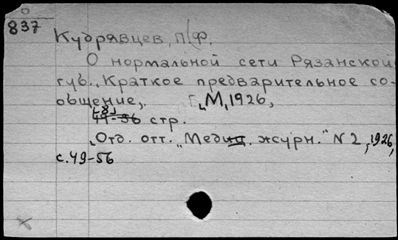 837
Кудрявцев, П.Ф.
О нормальной сети Рязанской
губ., Краткое предварительное со-
общение,. М, 1926,
[8] стр.
Отд. отт. „Медиц. журн." N 2, 1926,
с. 49-56